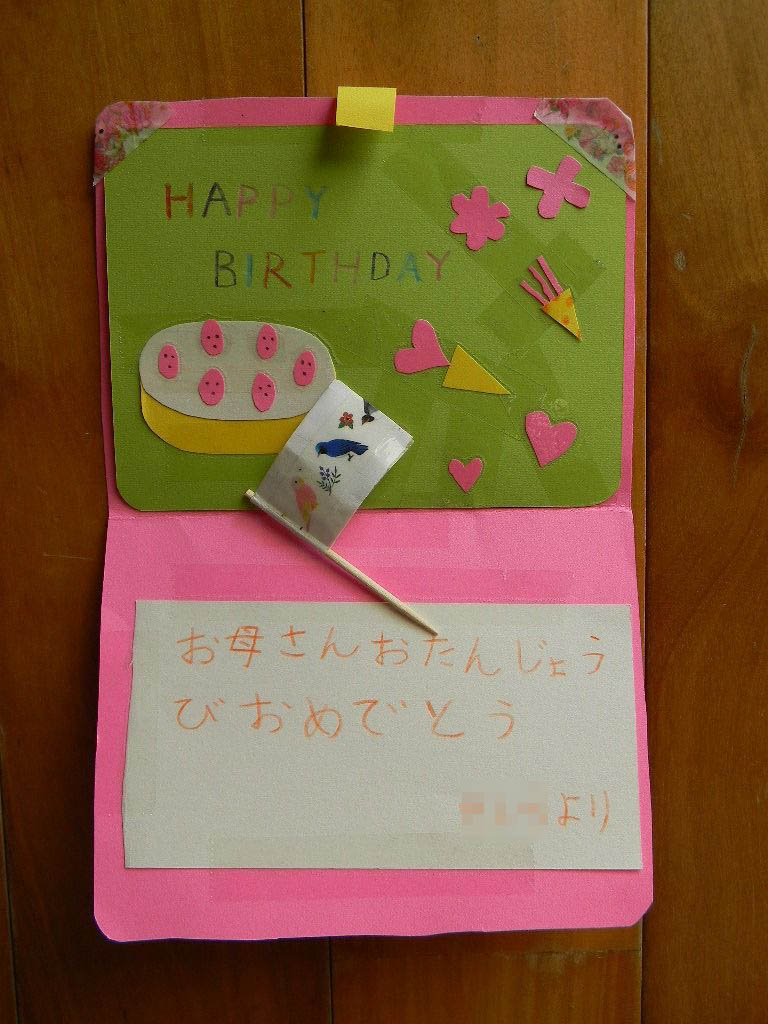 HAPPY
BIRTHDAY
お母さんおたんじょう
びおめでとう
より